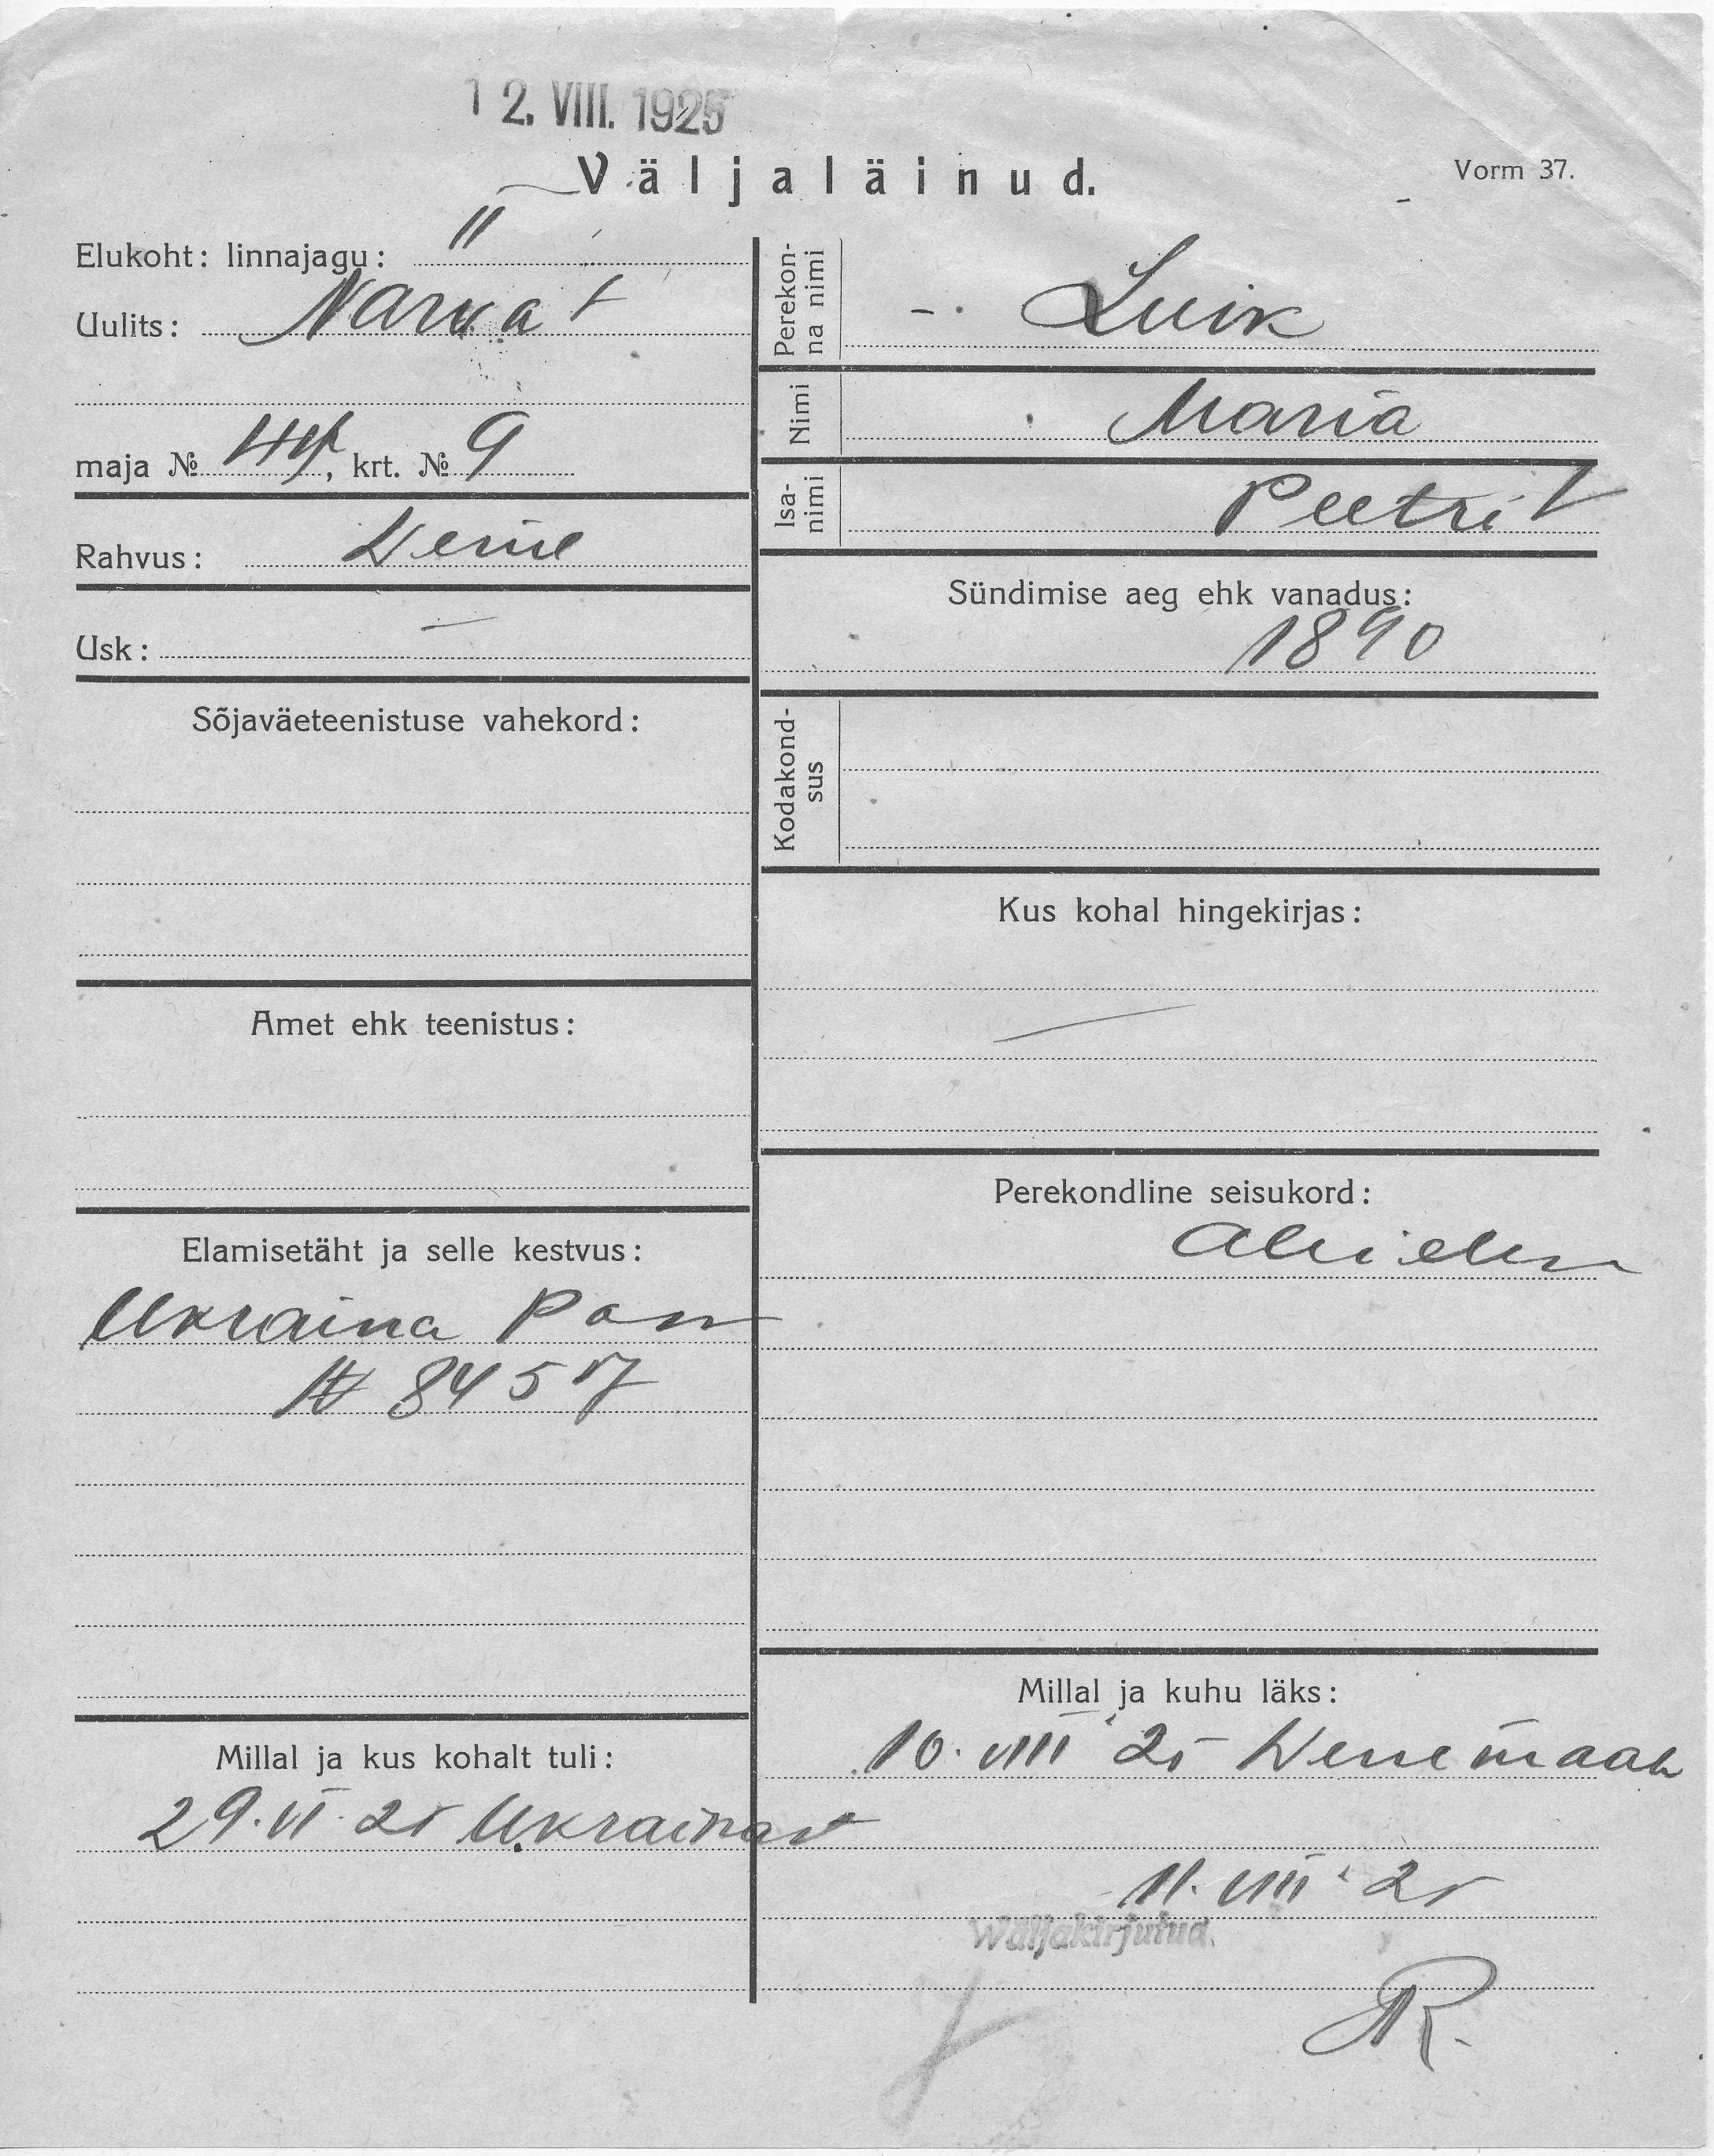 12. VIII. 1925
Väljaläinud.
Vorm 37.
Elukoht: linnajagu: II
Uulits: Narva t
maja № 44, krt. № 9
Rahvus: Wene
Usk: —
Sõjaväeteenistuse vahekord:
Amet ehk teenistus:
Elamisetäht ja selle kestvus:
Ukraina Pass
№ 8457
Millal ja kus kohalt tuli:
29. VI. 25 Ukrainast
Perekonna nimi
Luik
Nimi
Maria
Isanimi
Peetri t
Sündimise aeg ehk vanadus:
1890
Kodakondsus
Kus kohal hingekirjas:
—
Perekondline seisukord:
Abielus
Millal ja kuhu läks:
10. VIII 25 Wenemaale
11. VIII 25
Wäljakirjutud.
R.